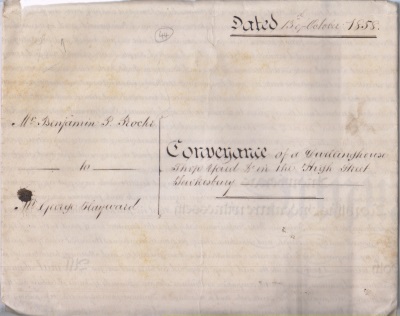 Dated 13th October 1858.
44
Mr. Benjamin P. Roche
to
Mr. George Hayward
Conveyance of a Dwellinghouse
Shop Yard & in the High Street
Hawkesbury